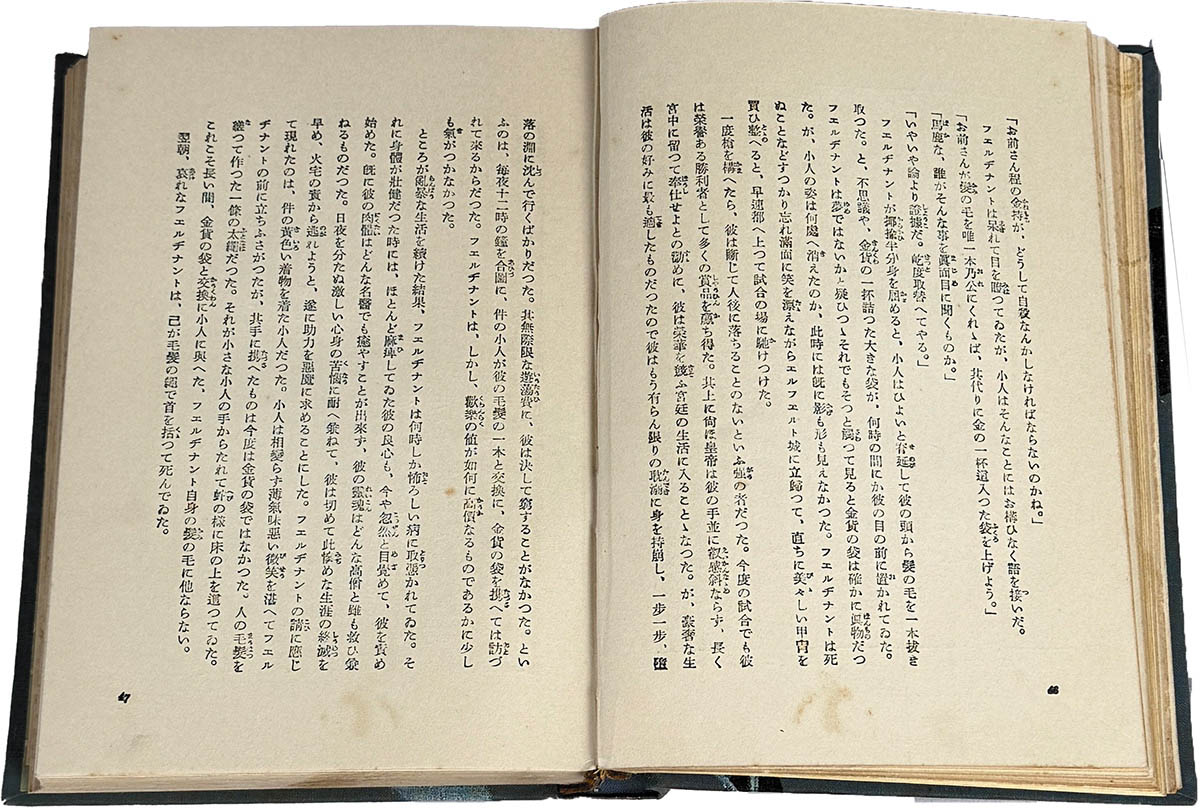 「お前さん程の金持が、どうして自殺なんかしなければならないのかね。」
フェルヂナントは呆れて目を瞪つてゐたが、小人はそんなことにはお構ひなく語を接いだ。
「お前さんが髪の毛を唯一本乃公にくれゝば、其代りに金の一杯這入つた袋を上げよう。」
「馬鹿な、誰がそんな事を眞面目に聞くものか。」
「いやいや論より證據だ。屹度取替へてやる。」
フェルヂナントが揶揄半分身を屈めると、小人はひよいと脊延して彼の頭から髪の毛を一本拔き
取つた。と、不思議や、金貨の一杯詰つた大きな袋が、何時の間にか彼の目の前に置かれてゐた。
フェルヂナントは夢ではないかと疑ひつゝそれでもそつと觸つて見ると金貨の袋は確かに眞物だつ
た。が、小人の姿は何處へ消えたのか、此時には既に影も形も見えなかつた。フェルヂナントは死
ぬことなどすつかり忘れ滿面に笑を漂えながらエルフェルト城に立歸つて、直ちに美々しい甲冑を
買ひ整へると、早速都へ上つて試合の場に馳けつけた。
一度槍を構へたら、彼は斷じて人後に落ちることのないといふ强の者だつた。今度の試合でも彼
は榮譽ある勝利者として多くの賞品を贏ち得た。其上に尙ほ皇帝は彼の手並に叡感斜ならず、長く
宮中に留つて奉仕せよとの勸めに、彼は榮華を競ふ宮廷の生活に入ることゝなつた。が、豪奢な生
活は彼の好みに最も適したものだつたので彼はもう有らん限りの耽溺に身を持崩し、一步一步、墮
66
落の淵に沈んで行くばかりだつた。其無際限な遊蕩費に、彼は決して窮することがなかつた。とい
ふのは、每夜十二時の鐘を合圖に、件の小人が彼の毛髮の一本と交換に、金貨の袋を携へては訪づ
れて來るからだつた。フェルヂナントは、しかし、歡樂の値が如何に高價なるものであるかに少し
も氣がつかなかつた。
ところが亂暴な生活を續けた結果、フェルヂナントは何時しか怖ろしい病に取憑かれてゐた。そ
れに身體が壯健だつた時には、ほとんど麻痺してゐた彼の良心も、今や忽然と目覺めて、彼を責め
始めた。既に彼の肉體はどんな名醫でも癒やすことが出來ず、彼の靈魂はどんな高僧と雖も救ひ兼
ねるものだつた。日夜を分たぬ激しい心身の苦惱に耐へ兼ねて、彼は切めて此慘めな生涯の終滅を
早め、火宅の責から逃れようと、遂に助力を惡魔に求めることにした。フェルヂナントの請に應じ
て現れたのは、件の黃色い着物を着た小人だつた。小人は相變らず薄氣味惡い微笑を湛へてフェル
ヂナントの前に立ちふさがつたが、其手に携へたものは今度は金貨の袋ではなかつた。人の毛髮を
縒つて作つた一條の太繩だつた。それが小さな小人の手からたれて蛇の樣に床の上を這つてゐた。
これこそ長い間、金貨の袋と交換に小人に與へた、フェルヂナント自身の髮の毛に他ならない。
翌朝、哀れなフェルヂナントは、己が毛髮の繩で首を括つて死んでゐた。
67